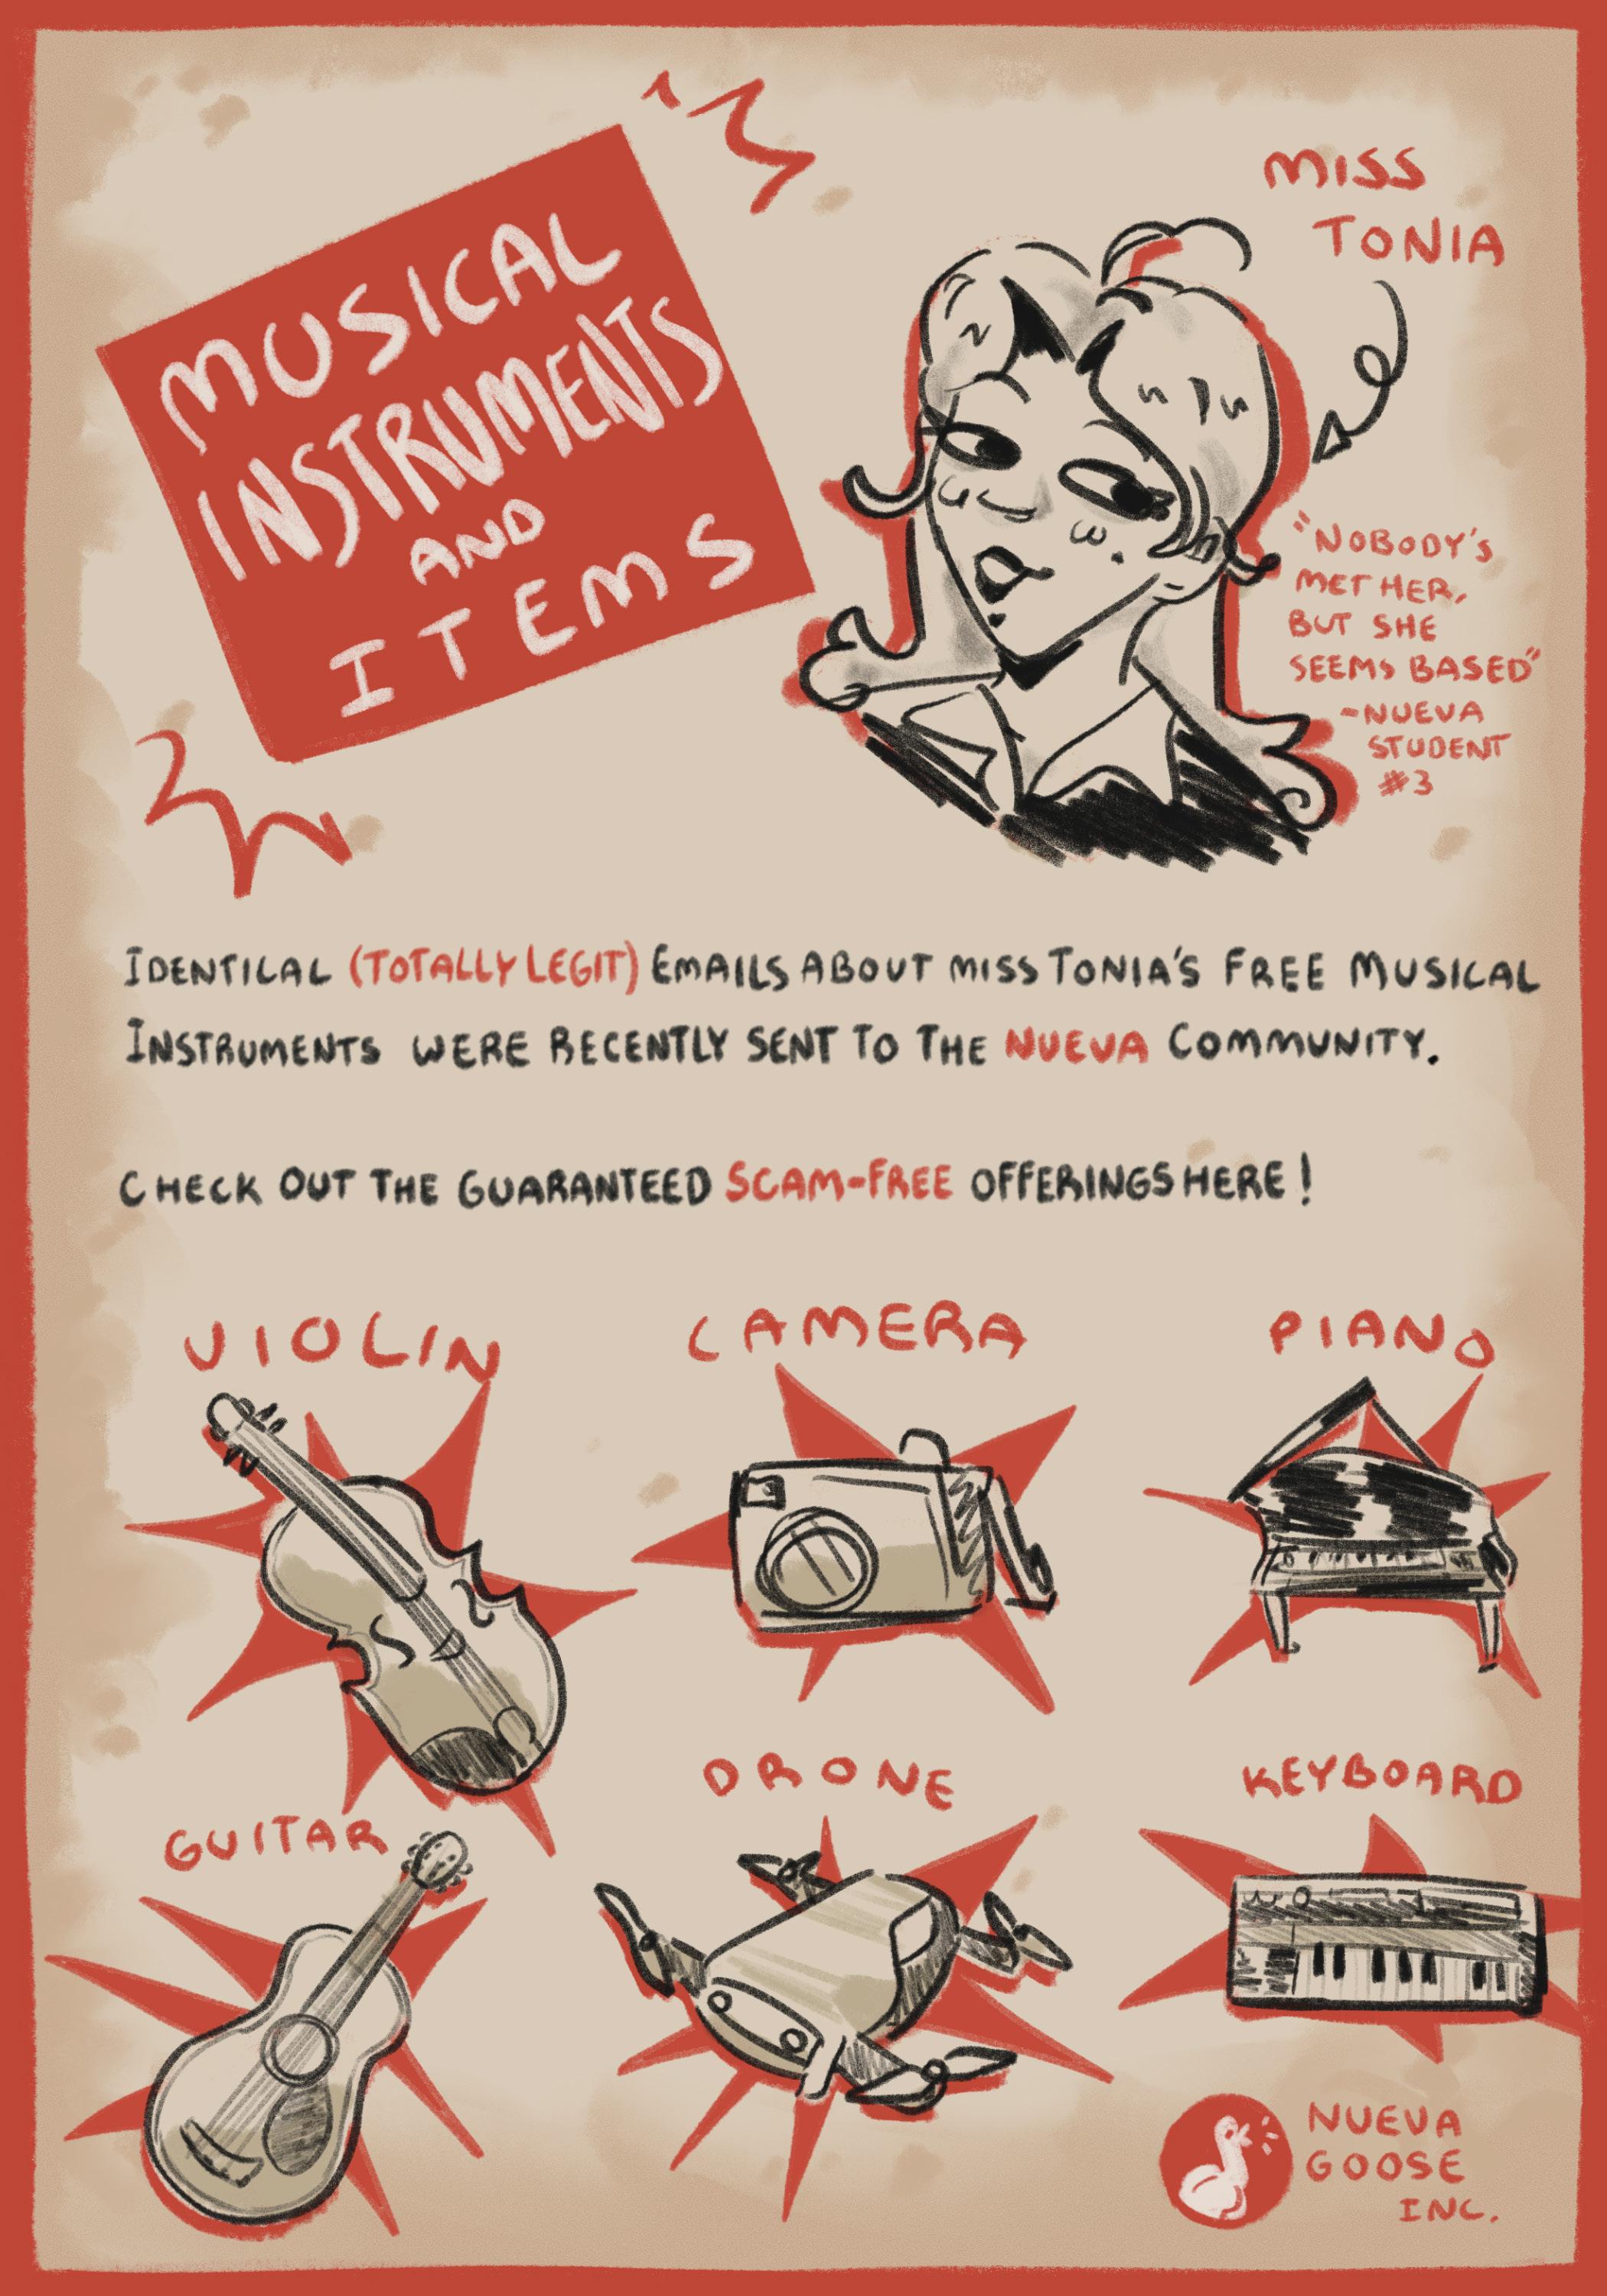 MUSICAL
INSTRUMENTS
AND
ITEMS
MISS
TONIA
"NOBODY'S
MET HER,
BUT SHE
SEEMS BASED"
-NUEVA
STUDENT
#3
IDENTICAL (TOTALLY LEGIT) EMAILS ABOUT MISS TONIA'S FREE MUSICAL
INSTRUMENTS WERE RECENTLY SENT TO THE NUEVA COMMUNITY.
CHECK OUT THE GUARANTEED SCAM-FREE OFFERINGS HERE!
VIOLIN
CAMERA
PIANO
GUITAR
DRONE
KEYBOARD
NUEVA
GOOSE
INC.